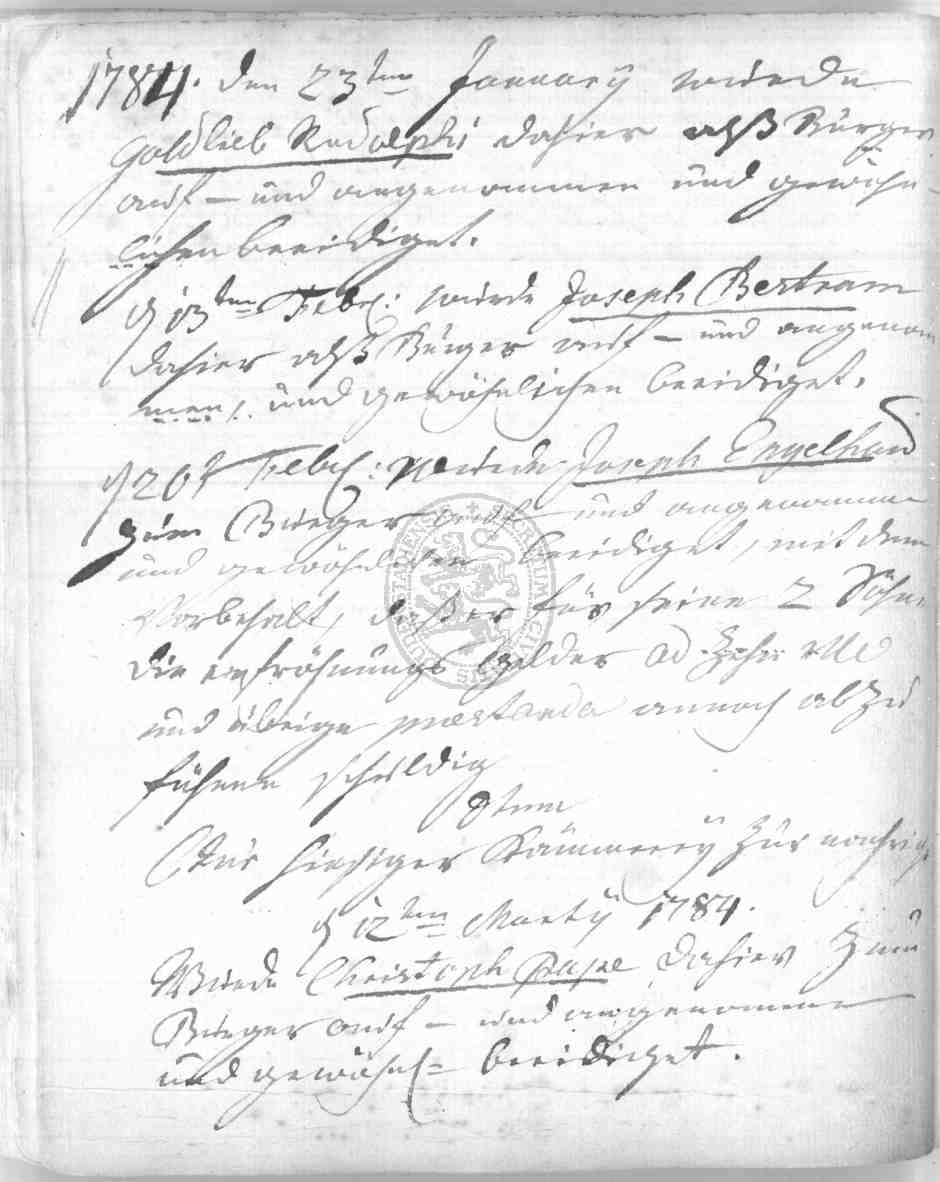 1784. den 23ten January wurde
Gottlieb Rudolphi dahier alß Bürger
auf- und angenommen und gewöhn-
lichen beeidiget.
d 13ten Febr: wurde Joseph Bertram
dahier alß Bürger auf- und angenom
men, und gewöhnlichen beeidiget.
d 20t Febr: wurde Joseph Engelhard
zum Bürger auf- und angenommen
und gewöhnlichen beeidiget, mit dem
Vorbehalt, daß er für seine 2 Söhne
die Gelder ad Zehn
und übrige praestanda annoch abzu
führen schuldig
hiesiger Kämmerey zur
d 12ten Marty 1784.
Wurde Christoph Pape dahier zum
Bürger auf- und angenommen
und gewöhnl= beeidiget.